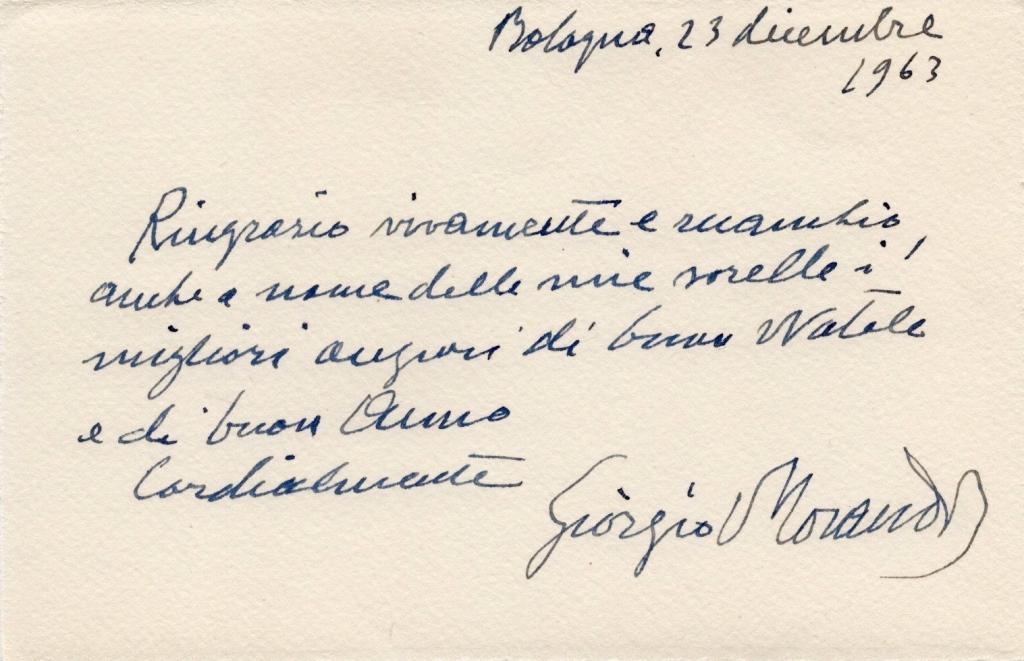 Bologna, 23 dicembre
1963
Ringrazio vivamente e ricambio,
anche a nome delle mie sorelle i
migliori auguri di buon Natale
e di buon Anno
Cordialmente
Giorgio Morandi